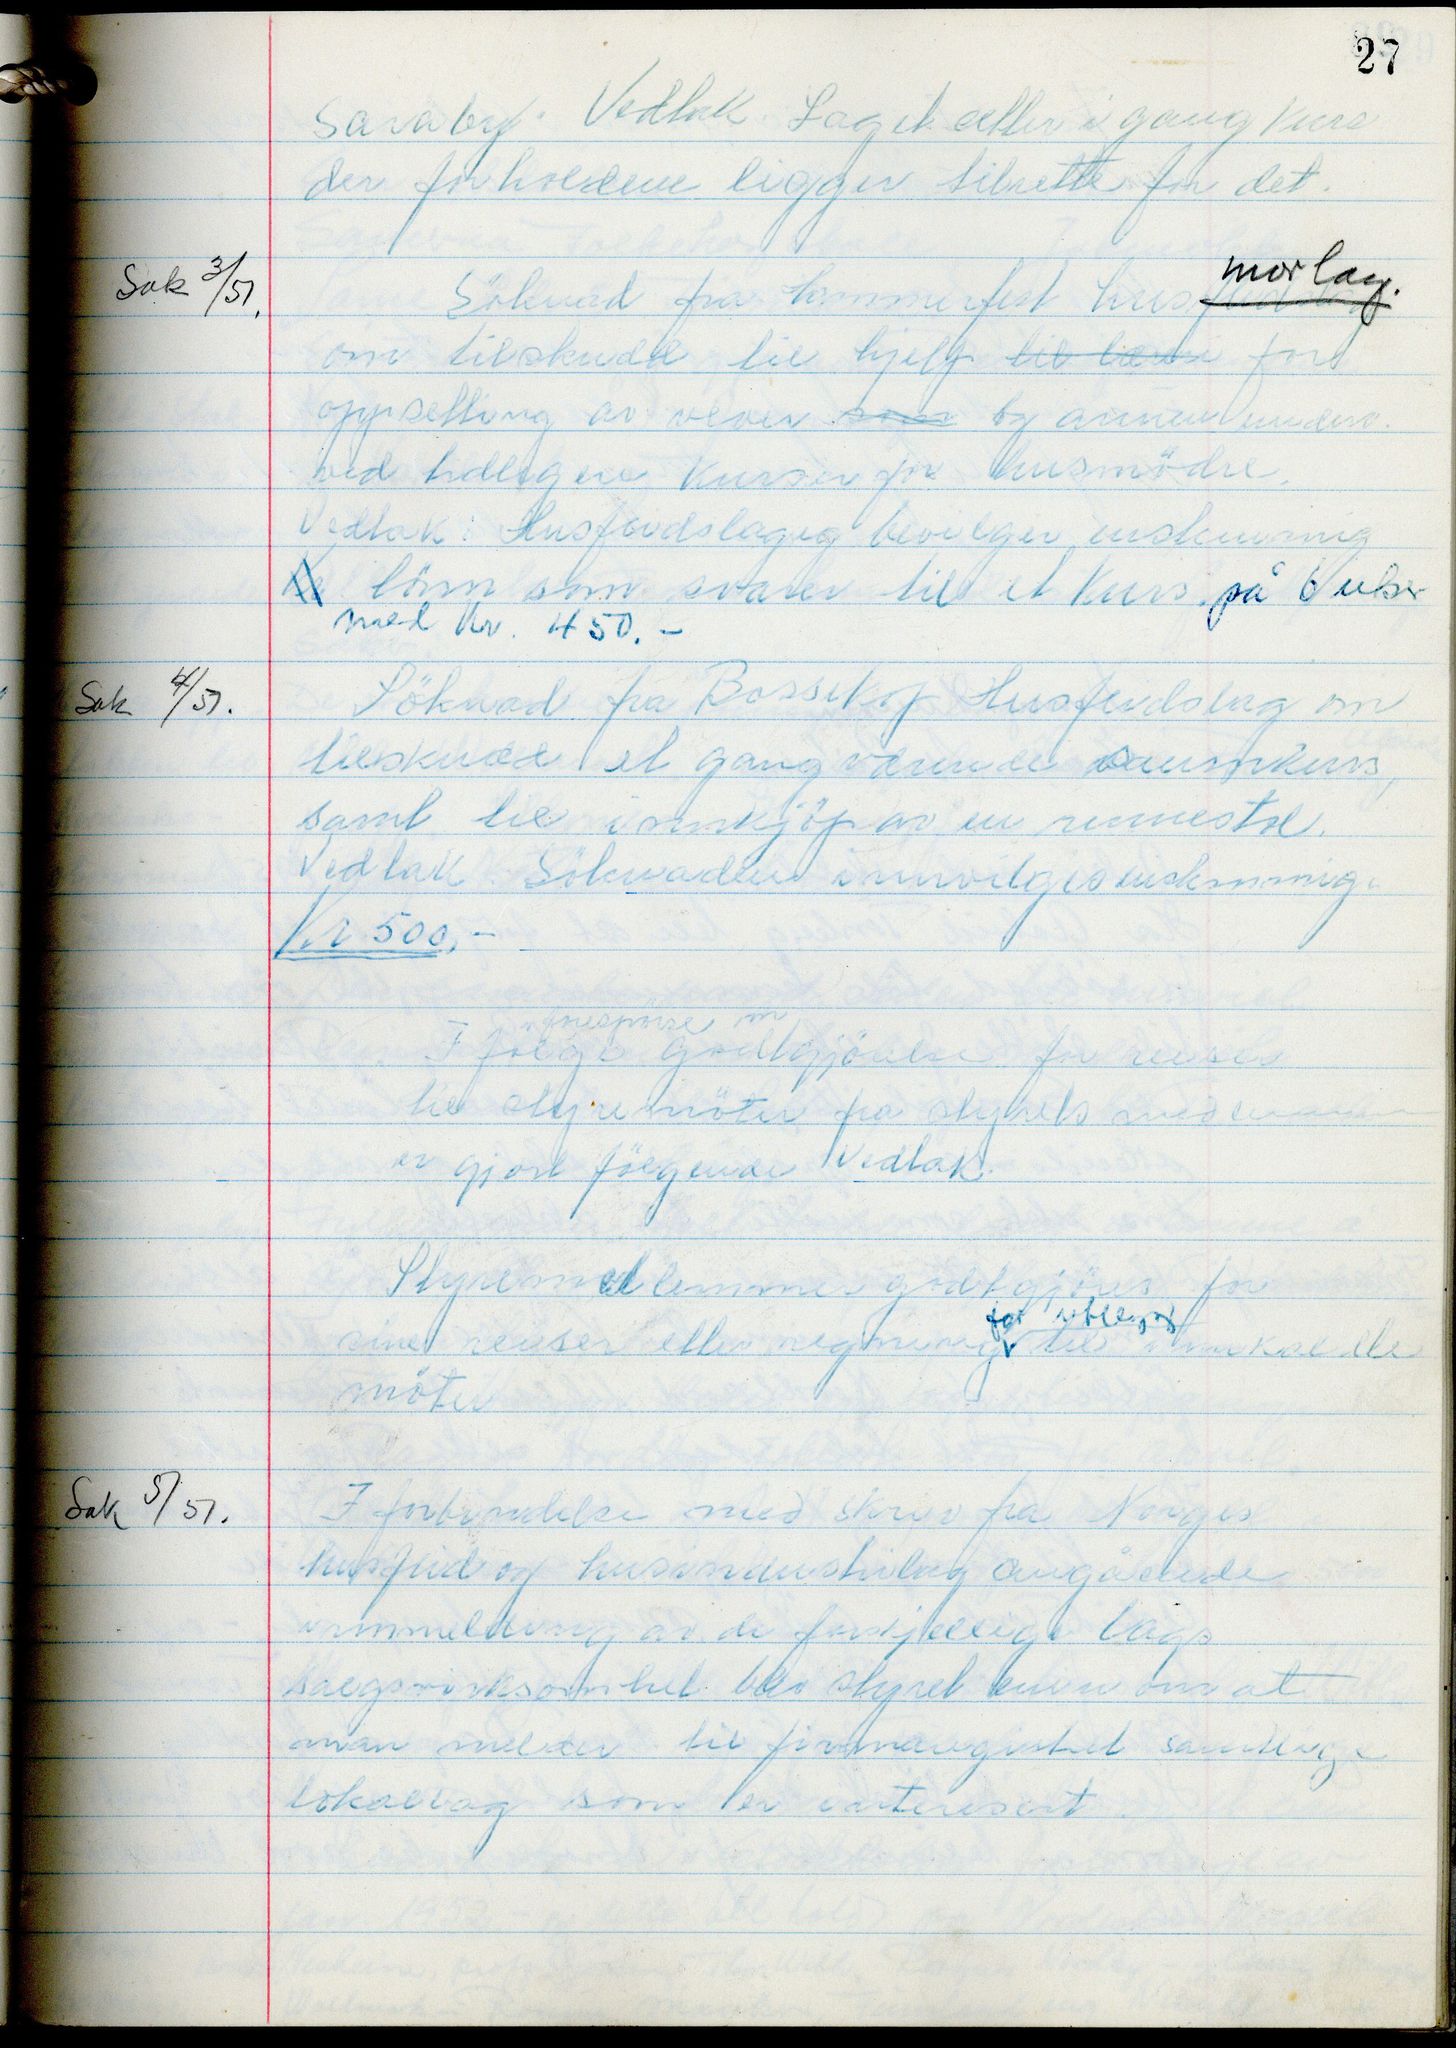 27
Saraby. Vedtak Laget setter i gang kurs
der forholdene ligger tilrette for det.
Sak 3/51.
Söknad fra Hammerfest hus morlag.
om tilskudd til hjelp til lærer for
oppsetting av vever som og annen underv.
ved tidligere kurser for husmödre.
Vedtak: Husflidslaget bevilger enstemmig
lönn som svarer til et kurs på 6 uker
med Kr. 450.-
Sak 4/51.
Söknad fra Bossekop Husflidslag om
tilskudd et gangværende saumkurs,
samt til innkjöp av en rennestol.
Vedtak. Söknaden innvilges enstemmig.
Kr 500,-
forespörsel om
I fölge godtgjörelse for reiser
til styremöter fra styrets medlemmer
er gjort fölgende Vedtak.
Styremedlemmer godtgjöres for
for utlegg
sine reiser etter regning til innkaldte
möter
Sak 5/51.
I forbindelse med skriv fra Norges
husflid og husindustrilag angående
innmelding av de forskjellige lags
salgsvirksomhet blev styret enen om at
man melder til firmaregistret samtlige
lokallag som er interesert.